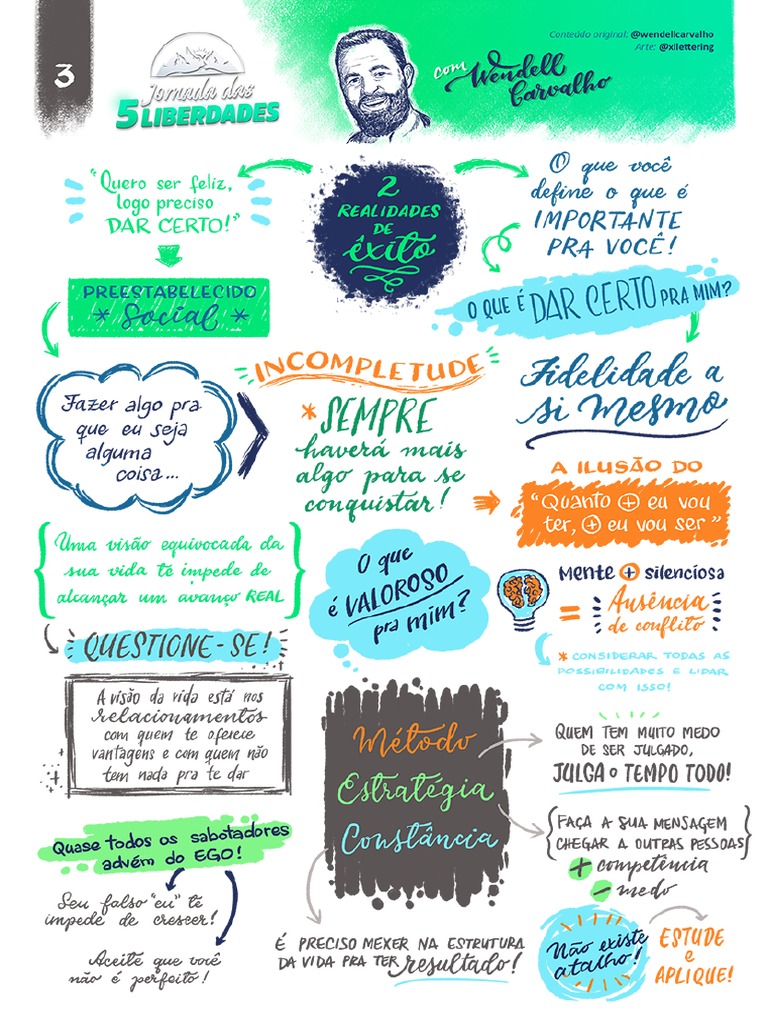 3
Jornada das
5 LIBERDADES
com Wendell
Carvalho
Conteúdo original: @wendellcarvalho
Arte: @xilettering
2
REALIDADES
DE
êxito
"Quero ser feliz,
logo preciso
DAR CERTO!"
PREESTABELECIDO
* Social *
Fazer algo pra
que eu seja
alguma
coisa...
O que você
define o que é
IMPORTANTE
PRA VOCÊ!
O QUE É DAR CERTO PRA MIM?
Fidelidade a
si mesmo
INCOMPLETUDE
* SEMPRE
haverá mais
algo para se
conquistar!
A ILUSÃO DO
"Quanto + eu vou
ter, + eu vou ser"
{ Uma visão equivocada da
sua vida te impede de
alcançar um avanço REAL }
QUESTIONE-SE!
A visão da vida está nos
relacionamentos
com quem te oferece
vantagens e com quem não
tem nada pra te dar
O que
é VALOROSO
pra mim?
Mente + silenciosa
= Ausência
de conflito
* CONSIDERAR TODAS AS
POSSIBILIDADES E LIDAR
COM ISSO!
Método
Estratégia
Constância
QUEM TEM MUITO MEDO
DE SER JULGADO,
JULGA O TEMPO TODO!
{ FAÇA A SUA MENSAGEM
CHEGAR A OUTRAS PESSOAS }
+ competência
- medo
Quase todos os sabotadores
advém do EGO!
Seu falso "eu" te
impede de crescer!
Aceite que você
não é perfeito!
É PRECISO MEXER NA ESTRUTURA
DA VIDA PRA TER resultado!
Não existe
atalho!
ESTUDE
e
APLIQUE!